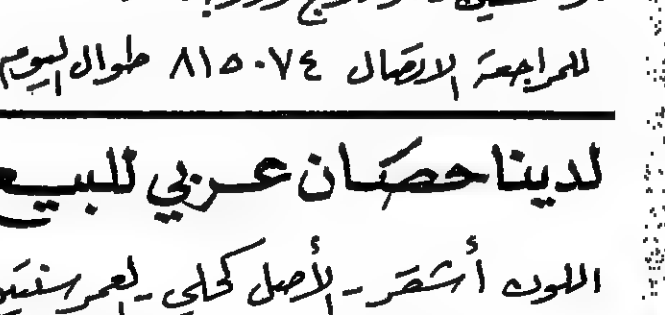 للمراجعة الاتصال ٨١٥٠٧٤ طوال اليوم
لدينا حصان عربي للبيع
اللون أشقر - الأصل كحلي - العمر سنتين